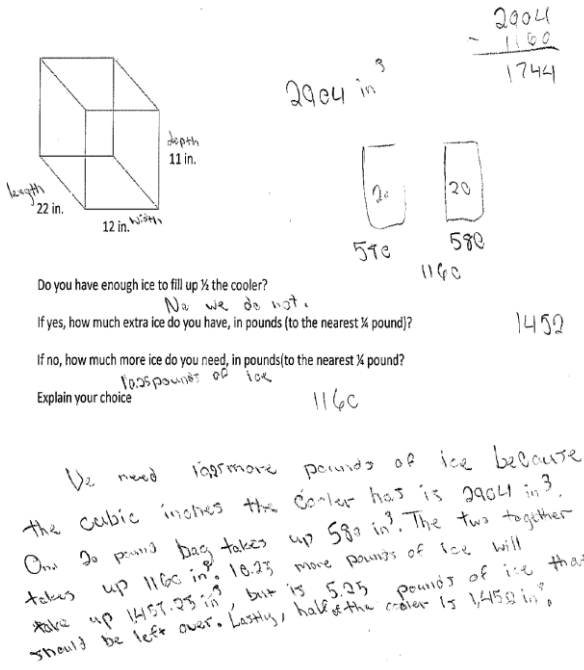 2904
- 1160
1744
2904 in³
depth
11 in.
length
22 in.
12 in. width
20 20
580 580
1160
Do you have enough ice to fill up ½ the cooler?
No we do not.
If yes, how much extra ice do you have, in pounds (to the nearest ¼ pound)?
1452
If no, how much more ice do you need, in pounds(to the nearest ¼ pound?
10.25 pounds of ice
Explain your choice
1160
We need more pounds of ice because
the cubic inches the cooler has is 2904 in³.
One 20 pound bag takes up 580 in³. The two together
takes up 1160 in³. 10.25 more pounds of ice will
take up 1457.25 in³, but is 5.25 pounds of ice that
should be left over. Lastly, half of the cooler is 1,452 in³.